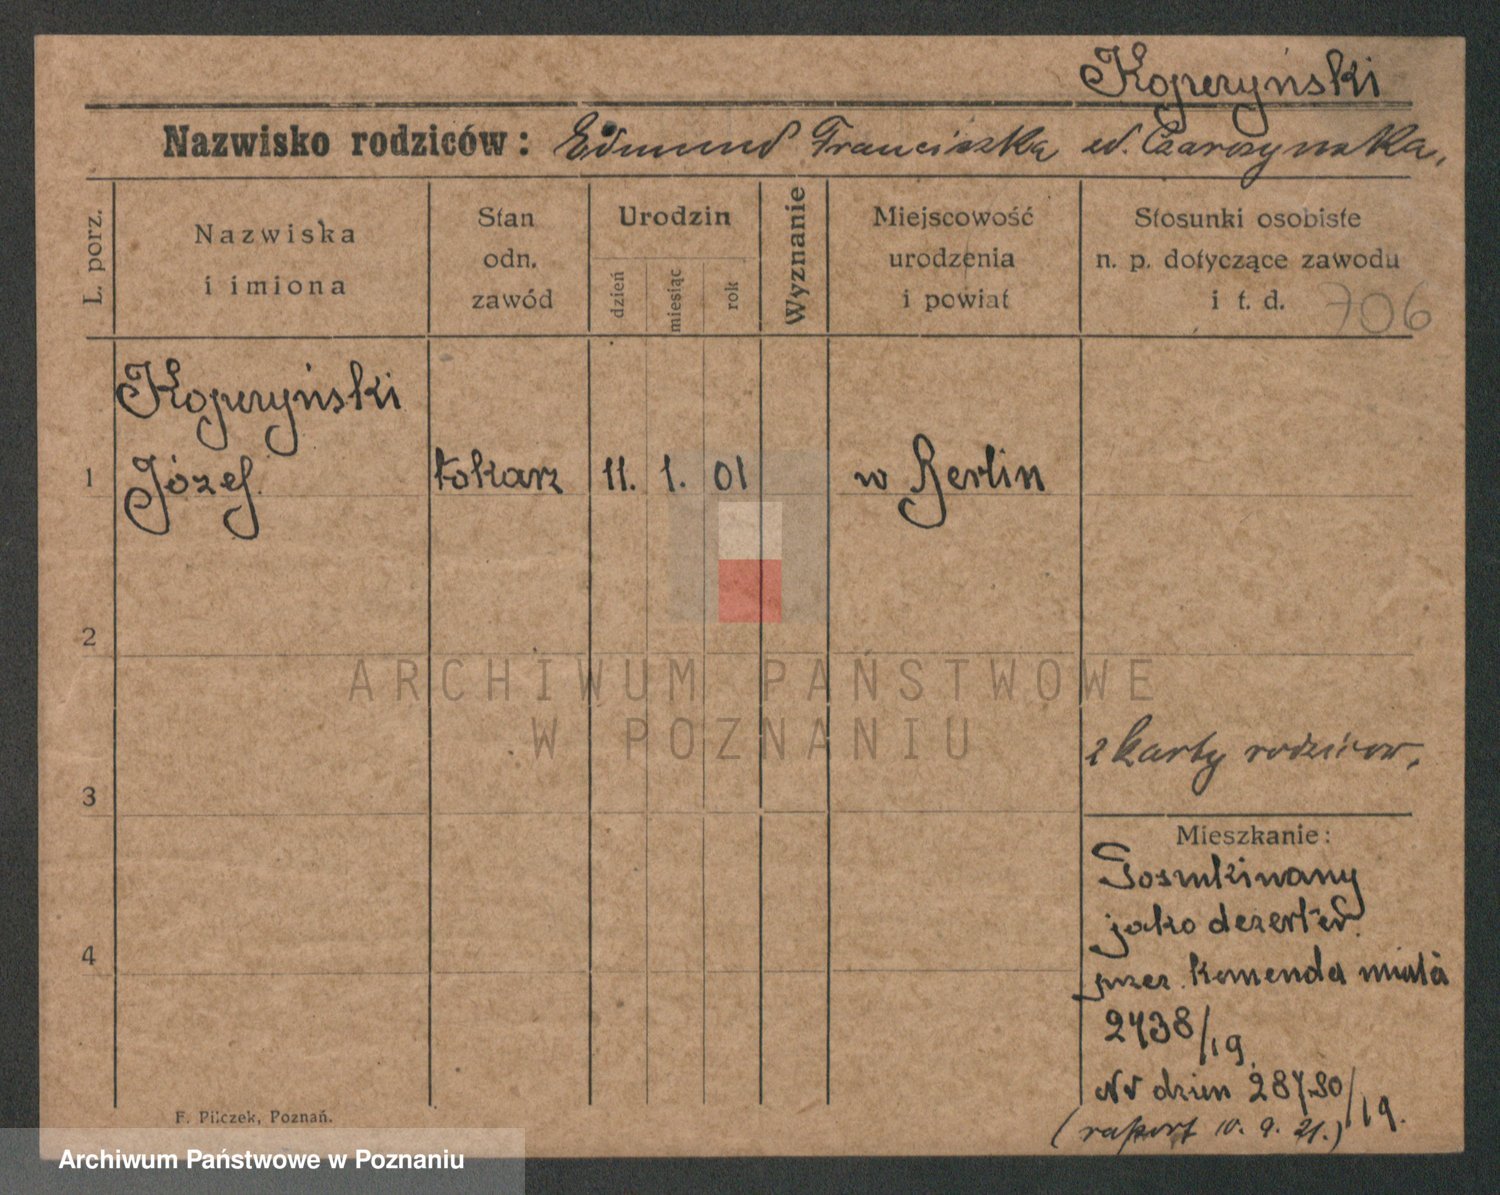 Koperyński
Nazwisko rodziców: Edmund Franciszka
L. porz.
Nazwiska
i imiona
Stan
odn.
zawód
Urodzin
dzień
miesiąc
rok
Wyznanie
Miejscowość
urodzenia
i powiat
Stosunki osobiste
n. p. dotyczące zawodu
i t. d. 706
Koperyński
1 Józef tokarz 11. 1. 01 w Berlin
2
ARCHIWUM PAŃSTWOWE
W POZNANIU
2 karty rodziców.
3
Mieszkanie:
Poszukiwany
jako dezerter
4
przez komenda miasta
2438/19.
Nr dzien /19.
(raport 10. 9. 21.)
F. Pilczek, Poznań.
Archiwum Państwowe w Poznaniu